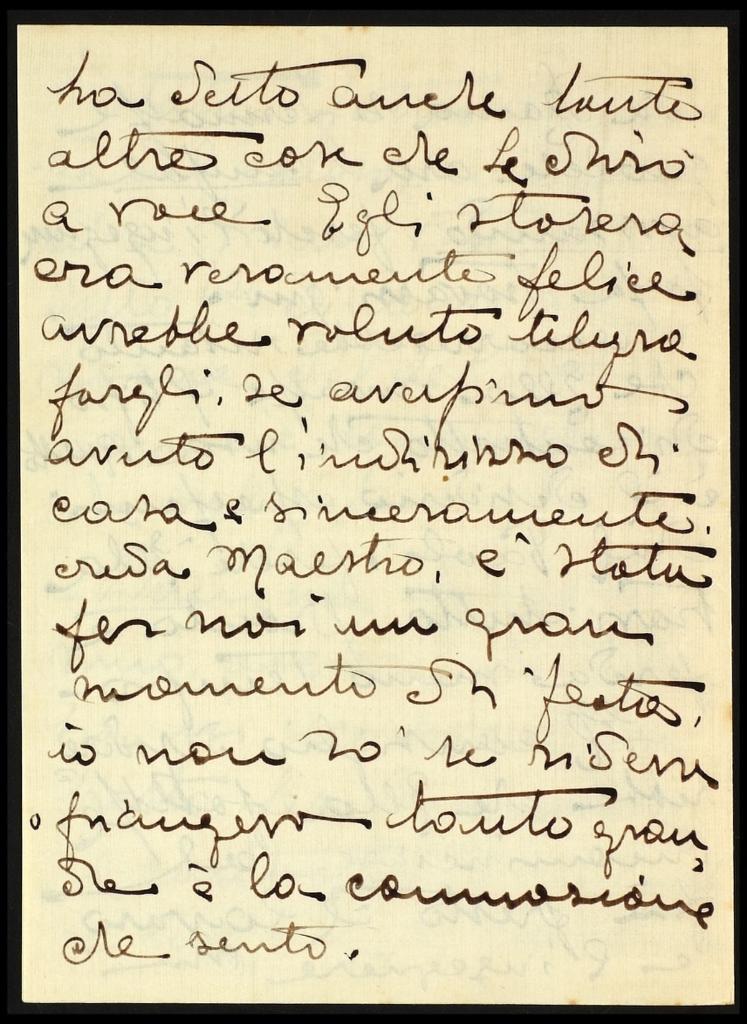 ha detto anche tante
altre cose che Le dirò
a voce. Egli stasera
era veramente felice
avrebbe voluto telegra
fargli, se avessimo
avuto l'indirizzo di
casa e sinceramente,
creda Maestro, è stato
per noi un gran
momento di festa,
io non so' se ridere
o piangere tanto gran,
de è la commozione
che sento.